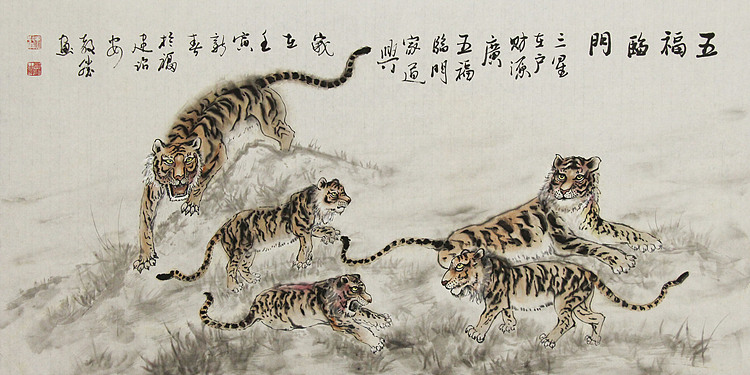 五福臨門
三星
在户
财源
廣
五福
臨門
家道
興
歲
在
壬
寅
新
春
於福
建诏
安
画